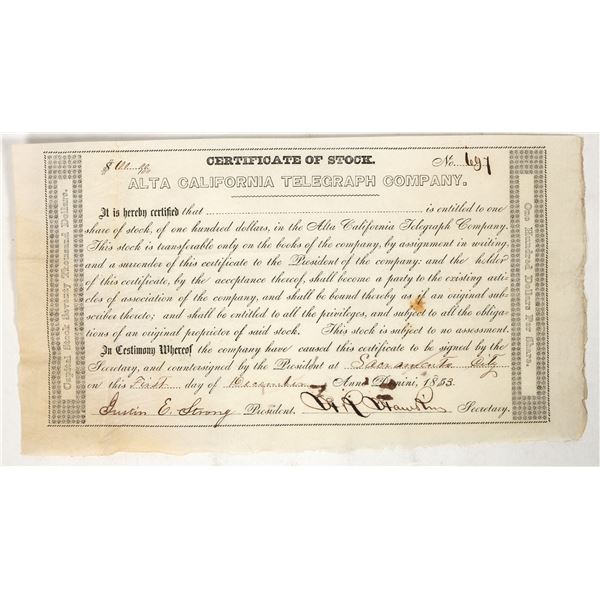 $ 100 00/100 CERTIFICATE OF STOCK. No. 697
ALTA CALIFORNIA TELEGRAPH COMPANY.
It is hereby certified that is entitled to one
share of stock, of one hundred dollars, in the Alta California Telegraph Company.
This stock is transferable only on the books of the company, by assignment in writing,
and a surrender of this certificate to the President of the company: and the holder
of this certificate, by the acceptance thereof, shall become a party to the existing arti-
cles of association of the company, and shall be bound thereby as if an original sub-
scriber thereto; and shall be entitled to all the privileges, and subject to all the obliga-
tions of an original proprietor of said stock. This stock is subject to no assessment.
In Testimony Whereof the company have caused this certificate to be signed by the
Secretary, and countersigned by the President at Sacramento City
on this First day of December Anno Domini, 1853
Justin E. Strong President. Secretary.
Capital Stock Seventy Thousand Dollars.
One Hundred Dollars Per Share.